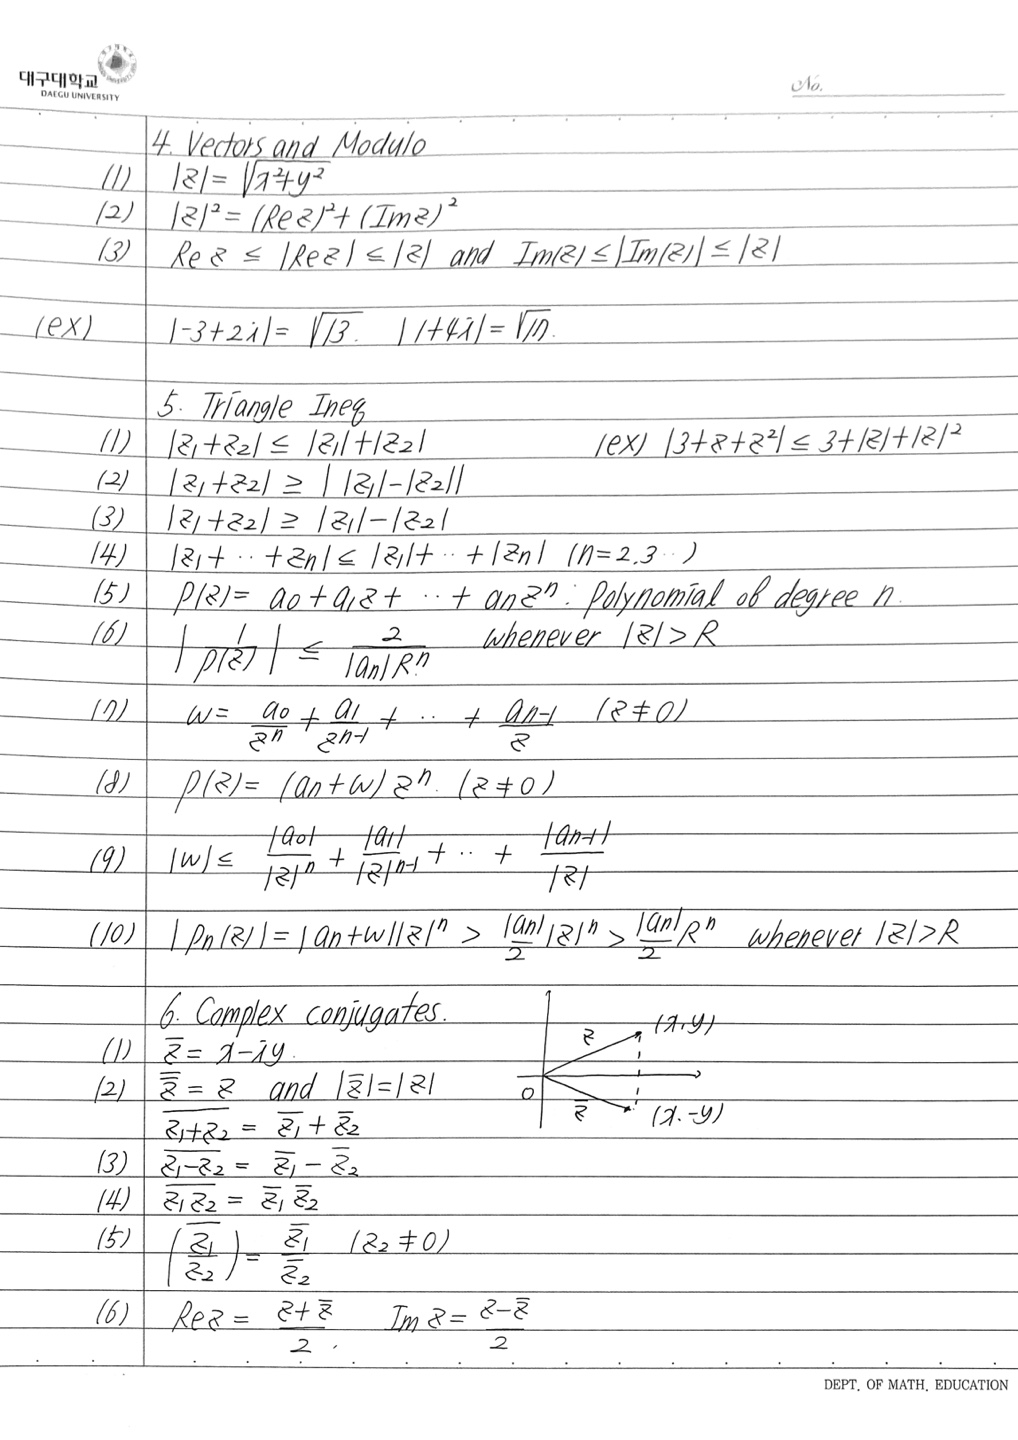 대구대학교
DAEGU UNIVERSITY
No.
4. Vectors and Modulo
(1) |z| = √(x²+y²)
(2) |z|² = (Re z)² + (Im z)²
(3) Re z ≤ |Re z| ≤ |z| and Im(z) ≤ |Im(z)| ≤ |z|
(ex) |-3+2i| = √13. |1+4i| = √17.
5. Triangle Ineq
(1) |z₁+z₂| ≤ |z₁|+|z₂| (ex) |3+z+z²| ≤ 3+|z|+|z|²
(2) |z₁+z₂| ≥ | |z₁|-|z₂||
(3) |z₁+z₂| ≥ |z₁|-|z₂|
(4) |z₁+ ·· +zn| ≤ |z₁|+ ·· +|zn| (n=2,3··)
(5) P(z) = a₀+a₁z+ ·· + anzⁿ : Polynomial of degree n.
(6) |1/P(z)| ≤ 2/(|an|Rⁿ) whenever |z|>R
(7) w = a₀/zⁿ + a₁/zⁿ⁻¹ + ·· + an-1/z (z≠0)
(8) P(z) = (an+w)zⁿ. (z≠0)
(9) |w| ≤ |a₀|/|z|ⁿ + |a₁|/|z|ⁿ⁻¹ + ·· + |an-1|/|z|
(10) |Pn(z)| = |an+w||z|ⁿ > |an|/2 |z|ⁿ > |an|/2 Rⁿ whenever |z|>R
6. Complex conjugates.
(1) z̄ = x-iy.
(2) z̿ = z and |z̄|=|z|
\overline{z₁+z₂} = z̄₁ + z̄₂
(3) \overline{z₁-z₂} = z̄₁ - z̄₂
(4) \overline{z₁z₂} = z̄₁ z̄₂
(5) (\overline{z₁/z₂}) = z̄₁/z̄₂ (z₂≠0)
(6) Re z = (z+z̄)/2. Im z = (z-z̄)/2
z (x,y)
O
z̄ (x.-y)
DEPT. OF MATH. EDUCATION